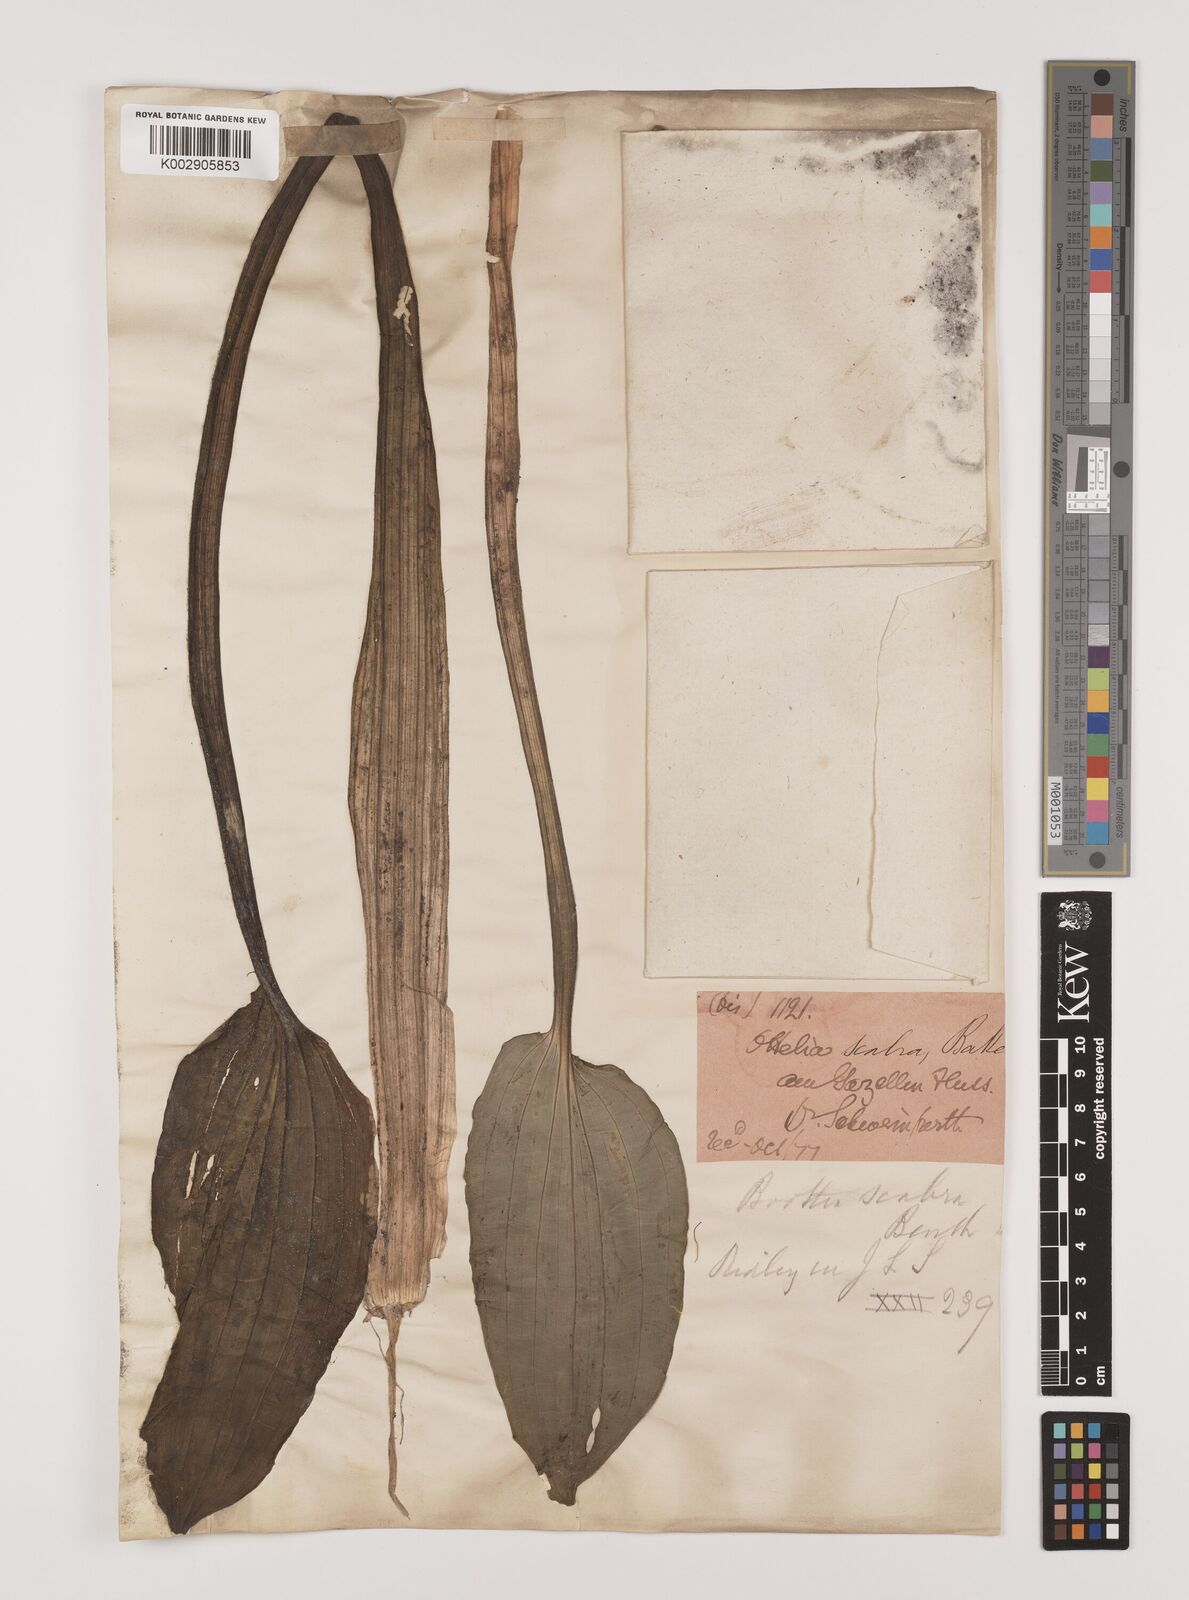 ROYAL BOTANIC GARDENS KEW
K002905853
(bis) 1121.
Ottelia scabra, Baker
am Gazellen Fluss.
Dr. Schweinfurth
Recd. Oct/77
Boottia scabra
Benth
Ridley in J L S
XXII 239
inches
Density
Don Williams
M001053
centimeters
Kew
Royal Botanic Gardens
0 1 2 3 4 5 6 7 8 9 10
cm
copyright reserved